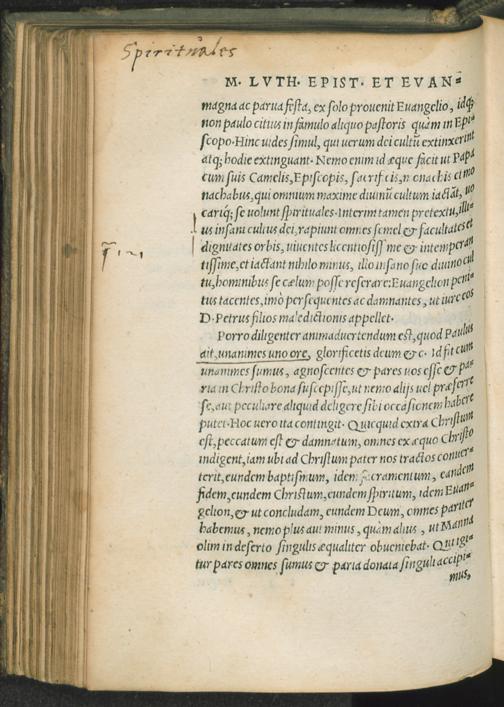 Spirituales
M. LVTH. EPIST. ET EVAN=
magna ac parua festa, ex solo prouenit Euangelio, idq;
non paulo citius in famulo aliquo pastoris quàm in Epi=
scopo. Hinc uides simul, qui uerum dei cultũ extinxerint
atq; hodie extinguant. Nemo enim id æque facit ut Papa
cum suis Camelis, Episcopis, sacrificis, monachis et mo
nachabus, qui omnium maxime diuinũ cultum iactãt, uo
cariq́; se uolunt spirituales. Interim tamen pretextu, illi=
us insani cultus dei, rapiunt omnes semel & facultates et
dignitates orbis, uiuentes licentiosissime & intemperan
tissime, et iactant nihilo minus, illo insano suo diuino cul
tu, hominibus se cælum posse reserare: Euangelion peni=
tus tacentes, imò persequentes ac damnantes, ut iure eos
D. Petrus filios maledictionis appellet.
Porro diligenter animaduertendum est, quod Paulus
ait, unanimes uno ore, glorificetis deum &c. Id fit cum
unanimes sumus, agnoscentes & pares nos esse & pa=
ria in Christo bona suscepisse, ut nemo alijs uel præferre
se, aut peculiare aliquid deligere sibi occasionem habere
putet. Hoc uero ita contingit. Quicquid extra Christum
est, peccatum est & damnatum, omnes ex æquo Christo
indigent, iam ubi ad Christum pater nos tractos conuer=
terit, eundem baptismum, idem sacramentum, eandem
fidem, eundem Christum, eundem spiritum, idem Euan=
gelion, & ut concludam, eundem Deum, omnes pariter
habemus, nemo plus aut minus, quàm alius, ut Manna
olim in deserto singulis æqualiter obueniebat. Qui igi=
tur pares omnes sumus & paria donata singuli accipi=
mus,